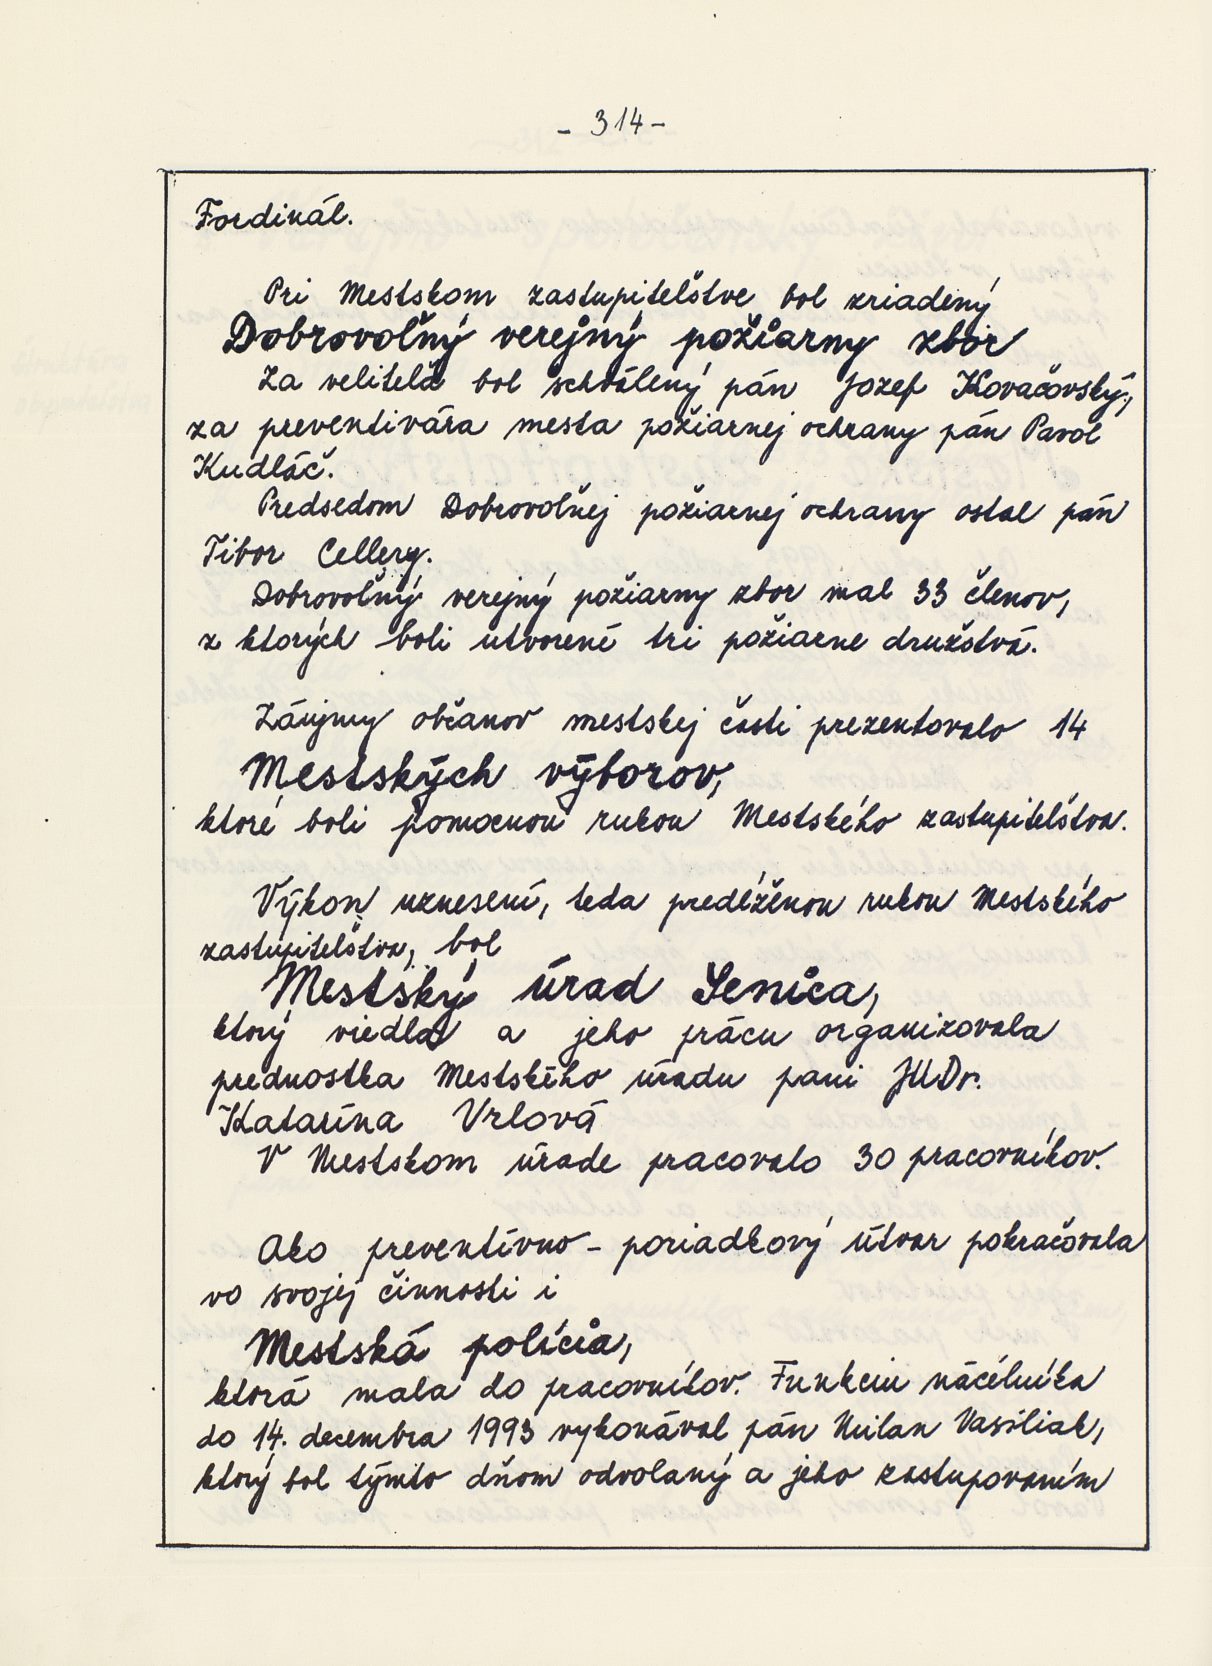 - 314 -
Fordinál.
Pri Mestskom zastupiteľstve bol zriadený
Dobrovoľný verejný požiarny zbor
Za veliteľa bol schválený pán Jozef Kovačovský,
za preventivára mesta požiarnej ochrany pán Pavol
Kudláč.
Predsedom Dobrovoľnej požiarnej ochrany ostal pán
Tibor Cellery.
Dobrovoľný verejný požiarny zbor mal 33 členov,
z ktorých boli utvorené tri požiarne družstvá.
Záujmy občanov mestskej časti prezentovalo 14
Mestských výborov,
ktoré boli pomocnou rukou Mestského zastupiteľstva.
Výkon uznesení, teda predĺženou rukou Mestského
zastupiteľstva, bol
Mestský úrad Senica,
ktorý viedla a jeho prácu organizovala
prednostka Mestského úradu pani JUDr.
Katarína Vrlová
V Mestskom úrade pracovalo 30 pracovníkov.
Ako preventívno - poriadkový útvar pokračovala
vo svojej činnosti i
Mestská polícia,
ktorá mala do pracovníkov. Funkciu náčelníka
do 14. decembra 1993 vykonával pán Milan Vasiliak,
ktorý bol týmto dňom odvolaný a jeho zastupovaním